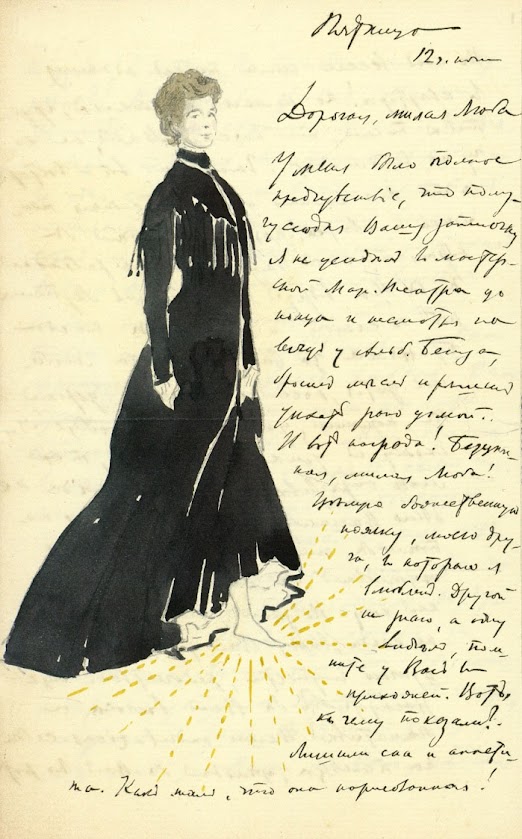 Пятница
12 ч. ночи
Дорогая, милая Люба
У меня было полное
предчувствіе, что полу-
чу сегодня Вашу записочку
Я не усидѣл в мастер-
ской Мар. Театра до
конца и несмотря на
вечер у Альб. Бенуа,
бросил маски и решил
уехать рано домой..
И вот награда! Безцѣн-
ная, милая Люба!
Цѣлую божественную
ножку, моего дру-
га, в которую я
влюблен. Другой
не знаю, а одну
видѣл, пом-
ните у Вас в
прихожей. Вотъ
к чему показали?
Лишили сна и аппети-
та. Какъ жаль, что она нарисованная!